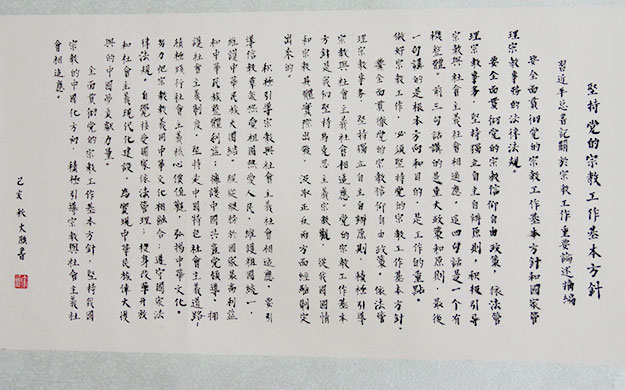 坚持党的宗教工作基本方针
习近平总书记關於宗教工作重要論述摘編
要全面贯彻党的宗教工作基本方針和國家管
理宗教事務的法律法規。
要全面贯彻党的宗教信仰自由政策,依法管
理宗教事務,堅持獨立自主自辦原則,积极引导
宗教與社會主義社會相適應,這四句話是一个有
機整體。前三句話講的是重大政策和原則,最後
一句講的是根本方向和目的,是工作的重點。
做好宗教工作,必須堅持党的宗教工作基本方針,
要全面贯彻党的宗教信仰自由政策,依法管
理宗教事务,堅持獨立自主自辦原則,积極引導
宗教與社會主義社會相適應。党的宗教工作基本
方針是我们堅持馬克思主義宗教觀、從我國國情
和宗教具體實際出發,汲取正反兩方面經驗制定
出來的。
积極引导宗教與社會主義社會相適應,要引
導信教羣眾熱愛祖國熱愛人民,維護祖國統一,
維護中華民族大團結,服從服務於國家最高利益
和中華民族整體利益;擁護中國共產党領導,擁
護社會主義制度,堅持走中國特色社會主義道路;
積極踐行社會主義核心價值觀,弘揚中華文化。
努力把宗教教義同中華文化相融合;遵守國家法
律法規,自覺接受國家依法管理;投身改革開放
和社會主義現代化建設,為實現中華民族偉大復
興的中國夢貢獻力量。
全面贯彻党的宗教工作基本方針,堅持我國
宗教的中國化方向,積極引導宗教與社會主義社
會相適應。
己亥 秋